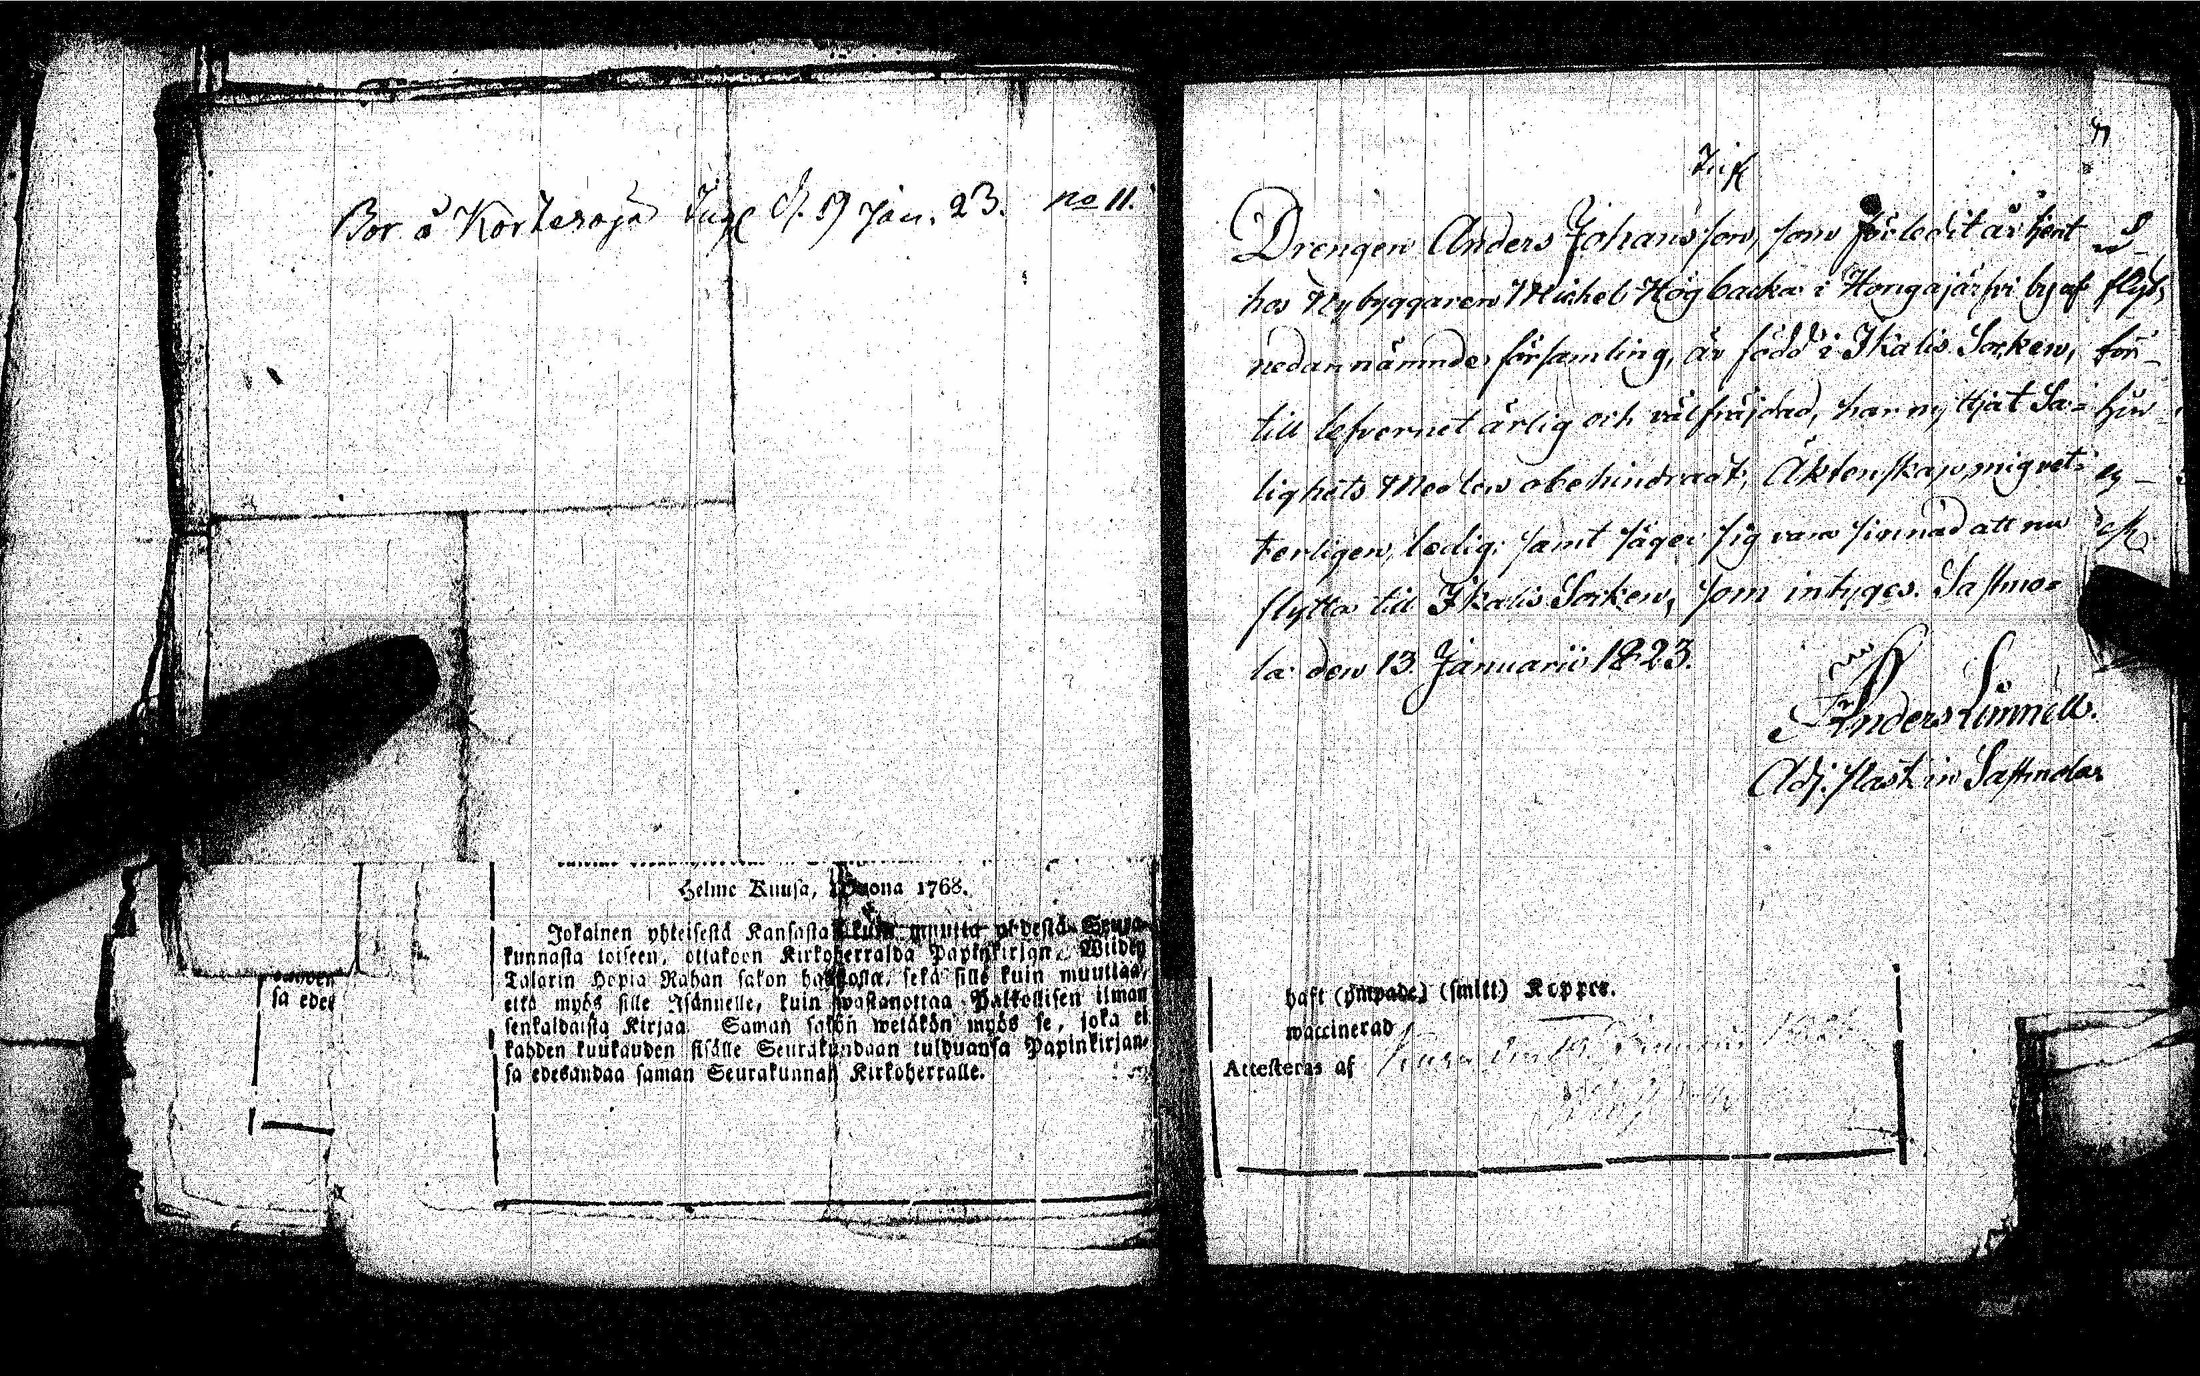 Bor å Kortesoja d. 19 Jan. 23. no 11.
Helme Kuusa, Vuona 1768.
Jokainen yhteisestä Kansasta kuin muutta yhdestä Seura-
kunnasta toiseen, ottakoon Kirkoherralda Papinkirjan. Wiiden
Talarin Hopia Rahan sakon haastolla, sekä sille kuin muuttaa,
että myös sille Isännelle, kuin wastanottaa Palkollisen ilman
senkaldaista Kirjaa. Saman sakon wetäkön myös se, joka ei
kahden kuukauden sisälle Seurakundaan tulduansa Papinkirjan-
sa edesandaa saman Seurakunnan Kirkoherralle.
sa edes
Drengen Anders Johansson, som förledit år tjent
hos Nybyggaren Michel Högbacka i Hongajärfvi by af
nedannämnde församling, är född i Ikalis Socken,
till lefvernet ärlig och välfräjdad, har nyttjat Sa-
lighets Medlen obehindradt, Äktenskap, mig vet-
terligen, ledig: samt säger sig vara sinnad att nu
flytta till Ikalis Socken, som intyges. Sastmo-
la den 13 Januarii 1823.
Anders Limnell.
Adj. Past. in Sastmola
haft (ympade) (smitt) Koppor.
waccinerad
Attesteras af